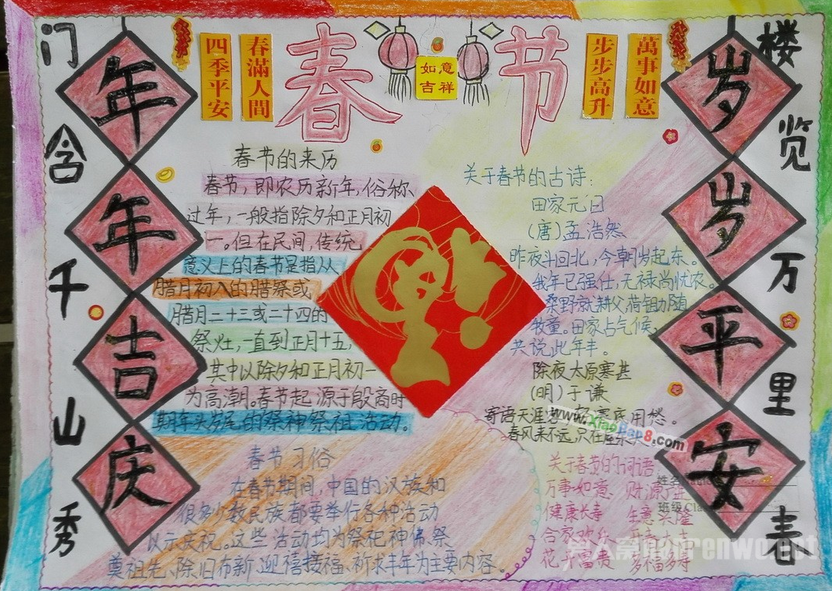 门含千山秀
年年吉庆
四季平安
春满人间
春节
如意
吉祥
步步高升
萬事如意
岁岁平安
楼览万里春
春节的来历
春节,即农历新年,俗称
过年,一般指除夕和正月初
一。但在民间,传统
意义上的春节是指从
腊月初八的腊祭或
腊月二十三或二十四的
祭灶,一直到正月十五,
其中以除夕和正月初一
为高潮。春节起源于殷商时
期年头岁尾的祭神祭祖活动。
春节习俗
在春节期间,中国的汉族和
很多少数民族都要举行各种活动
以示庆祝。这些活动均为祭祀神佛、祭
奠祖先、除旧布新、迎禧接福、祈求丰年为主要内容。
关于春节的古诗:
田家元日
(唐)孟浩然
昨夜斗回北,今朝岁起东。
我年已强仕,无禄尚忧农。
桑野就耕父,荷锄随
牧童。田家占气候,
共说此年丰。
除夜太原寒甚
(明)于谦
寄语天涯客,
用愁。
春风来不远,只在
www.XiaoBao8.com
关于春节的词语
万事如意
健康长寿
生意兴隆
花开富贵
多福多寿
姓名
班级Cla